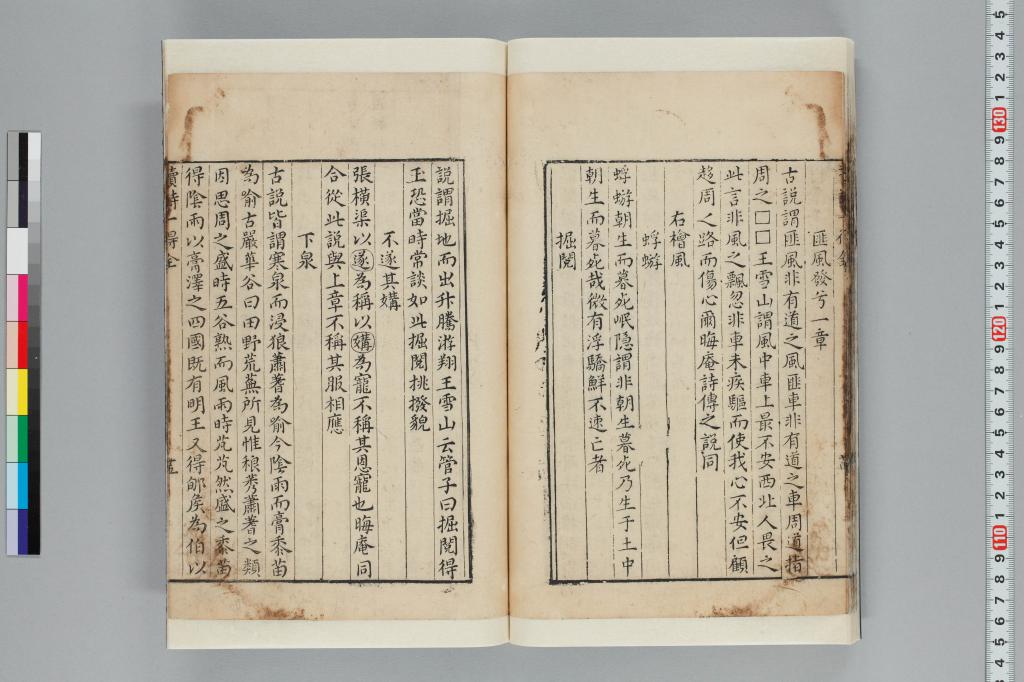 匪風發兮一章
古説謂匪風非有道之風匪車非有道之車周道指
周之□□王雪山謂風中車上最不安西北人畏之
此言非風之飄忽非車未疾驅而使我心不安但顧
趍周之路而傷心爾晦庵詩傳之説同
右檜風
蜉蝣
蜉蝣朝生而暮死岷隠謂非朝生暮死乃生于土中
朝生而暮死哉微有浮驕鮮不速亡者
掘閱
説謂掘地而出升騰游翔王雪山云管子曰掘閱得
玉恐當時常談如此掘閱挑撥貌
不遂其媾
張横渠以遂為稱以媾為寵不稱其恩寵也晦庵同
合從此説與上章不稱其服相應
下泉
古説皆謂寒泉而浸狼蕭蓍為喻今陰雨而膏黍苗
為喻古嚴華谷曰田野荒蕪所見惟稂莠蕭蓍之類
因思周之盛時五谷熟而風雨時芃芃然盛之黍苗
得陰雨以膏澤之四國既有明王又得郇矦為伯以
讀詩一得全